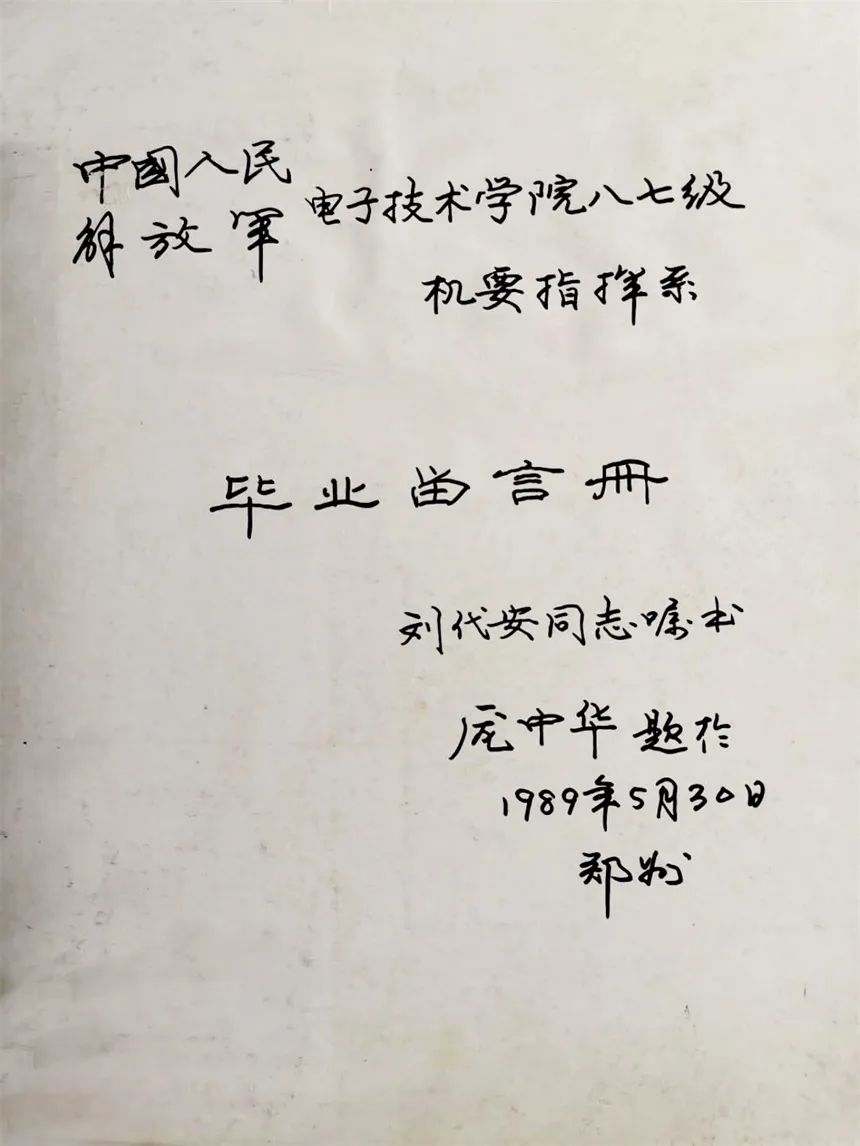 中國人民
解放军
电子技术学院八七级
机要指挥系
毕业留言冊
刘代安同志嘱书
庞中华题于
1989年5月30日
郑州